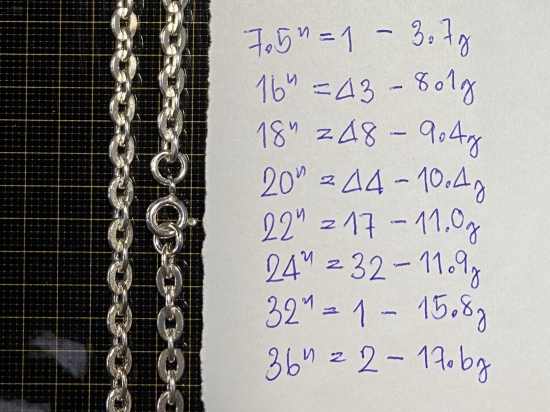 7.5" = 1 - 3.7g
16" = 43 - 8.1g
18" = 48 - 9.4g
20" = 44 - 10.4g
22" = 17 - 11.0g
24" = 32 - 11.9g
32" = 1 - 15.8g
36" = 2 - 17.6g